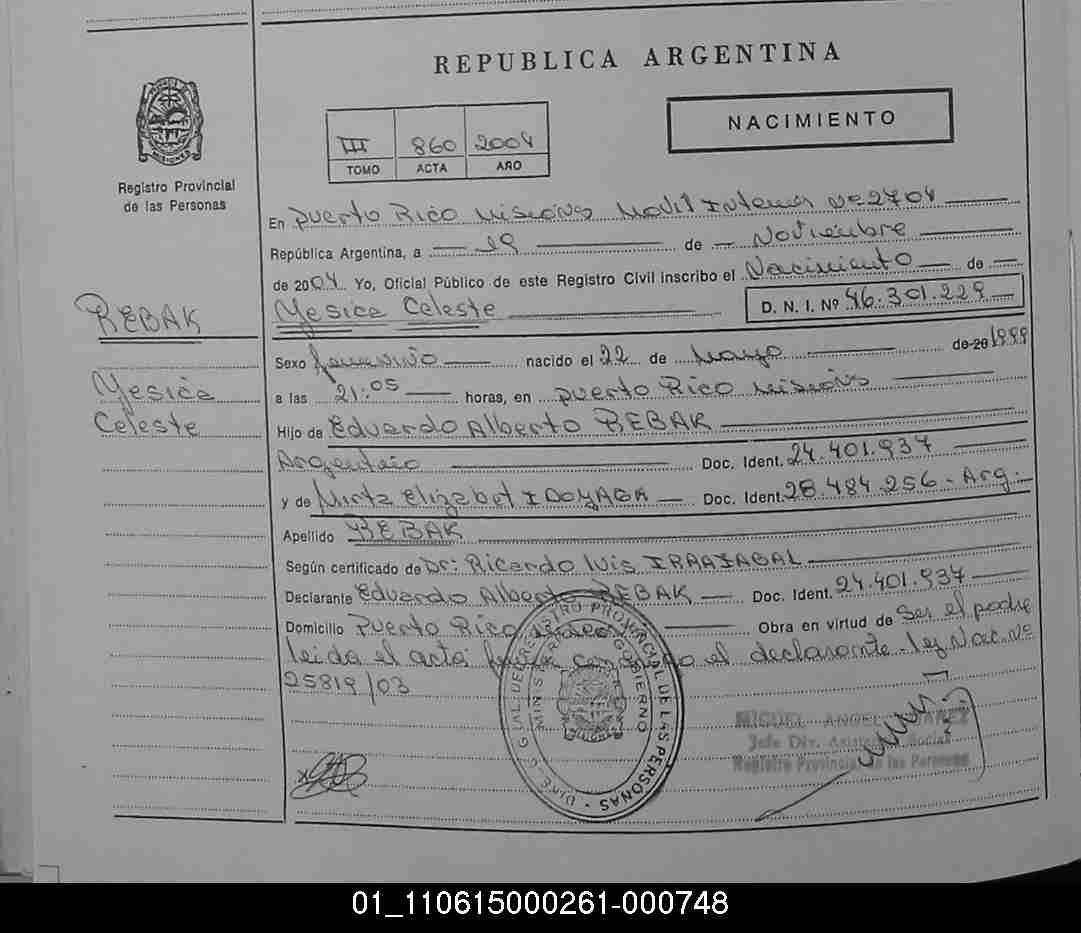 REPUBLICA ARGENTINA
NACIMIENTO
III 860 2004
TOMO ACTA AÑO
Registro Provincial
de las Personas
En Puerto Rico Misiones Movil Interna Nº 2704
República Argentina, a 19 de Noviembre
de 2004 Yo, Oficial Público de este Registro Civil inscribo el Nacimiento de
Yesica Celeste D. N. I. Nº 46.301.229
REBAK
Yesica
Celeste
Sexo femenino nacido el 22 de Mayo de 20 1999
a las 21:05 horas, en Puerto Rico Misiones
Hijo de Eduardo Alberto REBAK
Argentino Doc. Ident. 24.401.937
y de Mirta Elizabet IDOYAGA Doc. Ident. 28.484.256 - Arg.
Apellido REBAK
Según certificado de Dr: Ricardo Luis IRRAZABAL
Declarante Eduardo Alberto REBAK Doc. Ident. 24.401.937
Domicilio Puerto Rico Misiones Obra en virtud de Ser el padre
leida el acta firma conmigo el declarante. ley Nac. Nº
25819/03
DIREC. GRAL. DEL REGISTRO PROVINCIAL DE LAS PERSONAS
MINISTERIO GOBIERNO
MISIONES
MIGUEL ANGEL
Jefe Div. Asistencia Social
Registro Provincial de las Personas
01_110615000261-000748